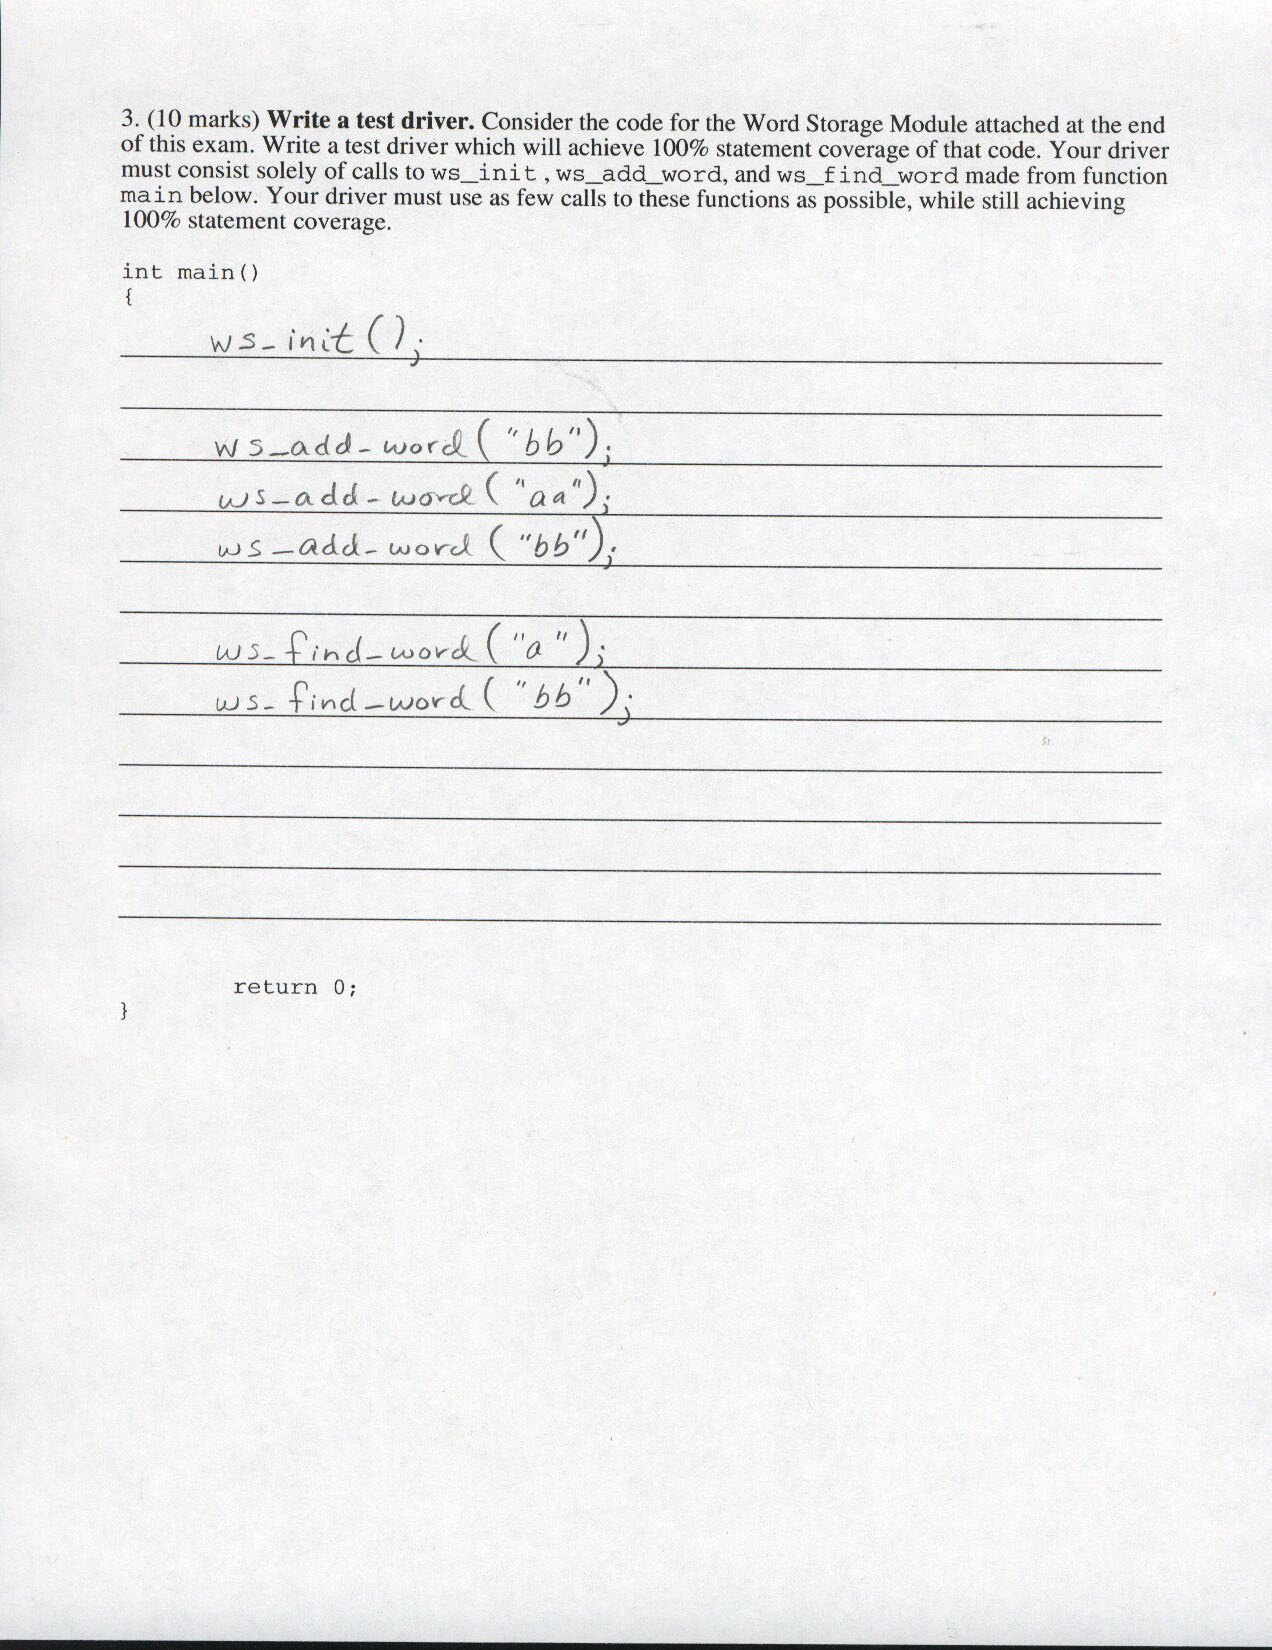 3. (10 marks) Write a test driver. Consider the code for the Word Storage Module attached at the end
of this exam. Write a test driver which will achieve 100% statement coverage of that code. Your driver
must consist solely of calls to ws_init , ws_add_word, and ws_find_word made from function
main below. Your driver must use as few calls to these functions as possible, while still achieving
100% statement coverage.
int main()
{
ws_init();
ws_add_word("bb");
ws_add_word("aa");
ws_add_word("bb");
ws_find_word("a");
ws_find_word("bb");
return 0;
}